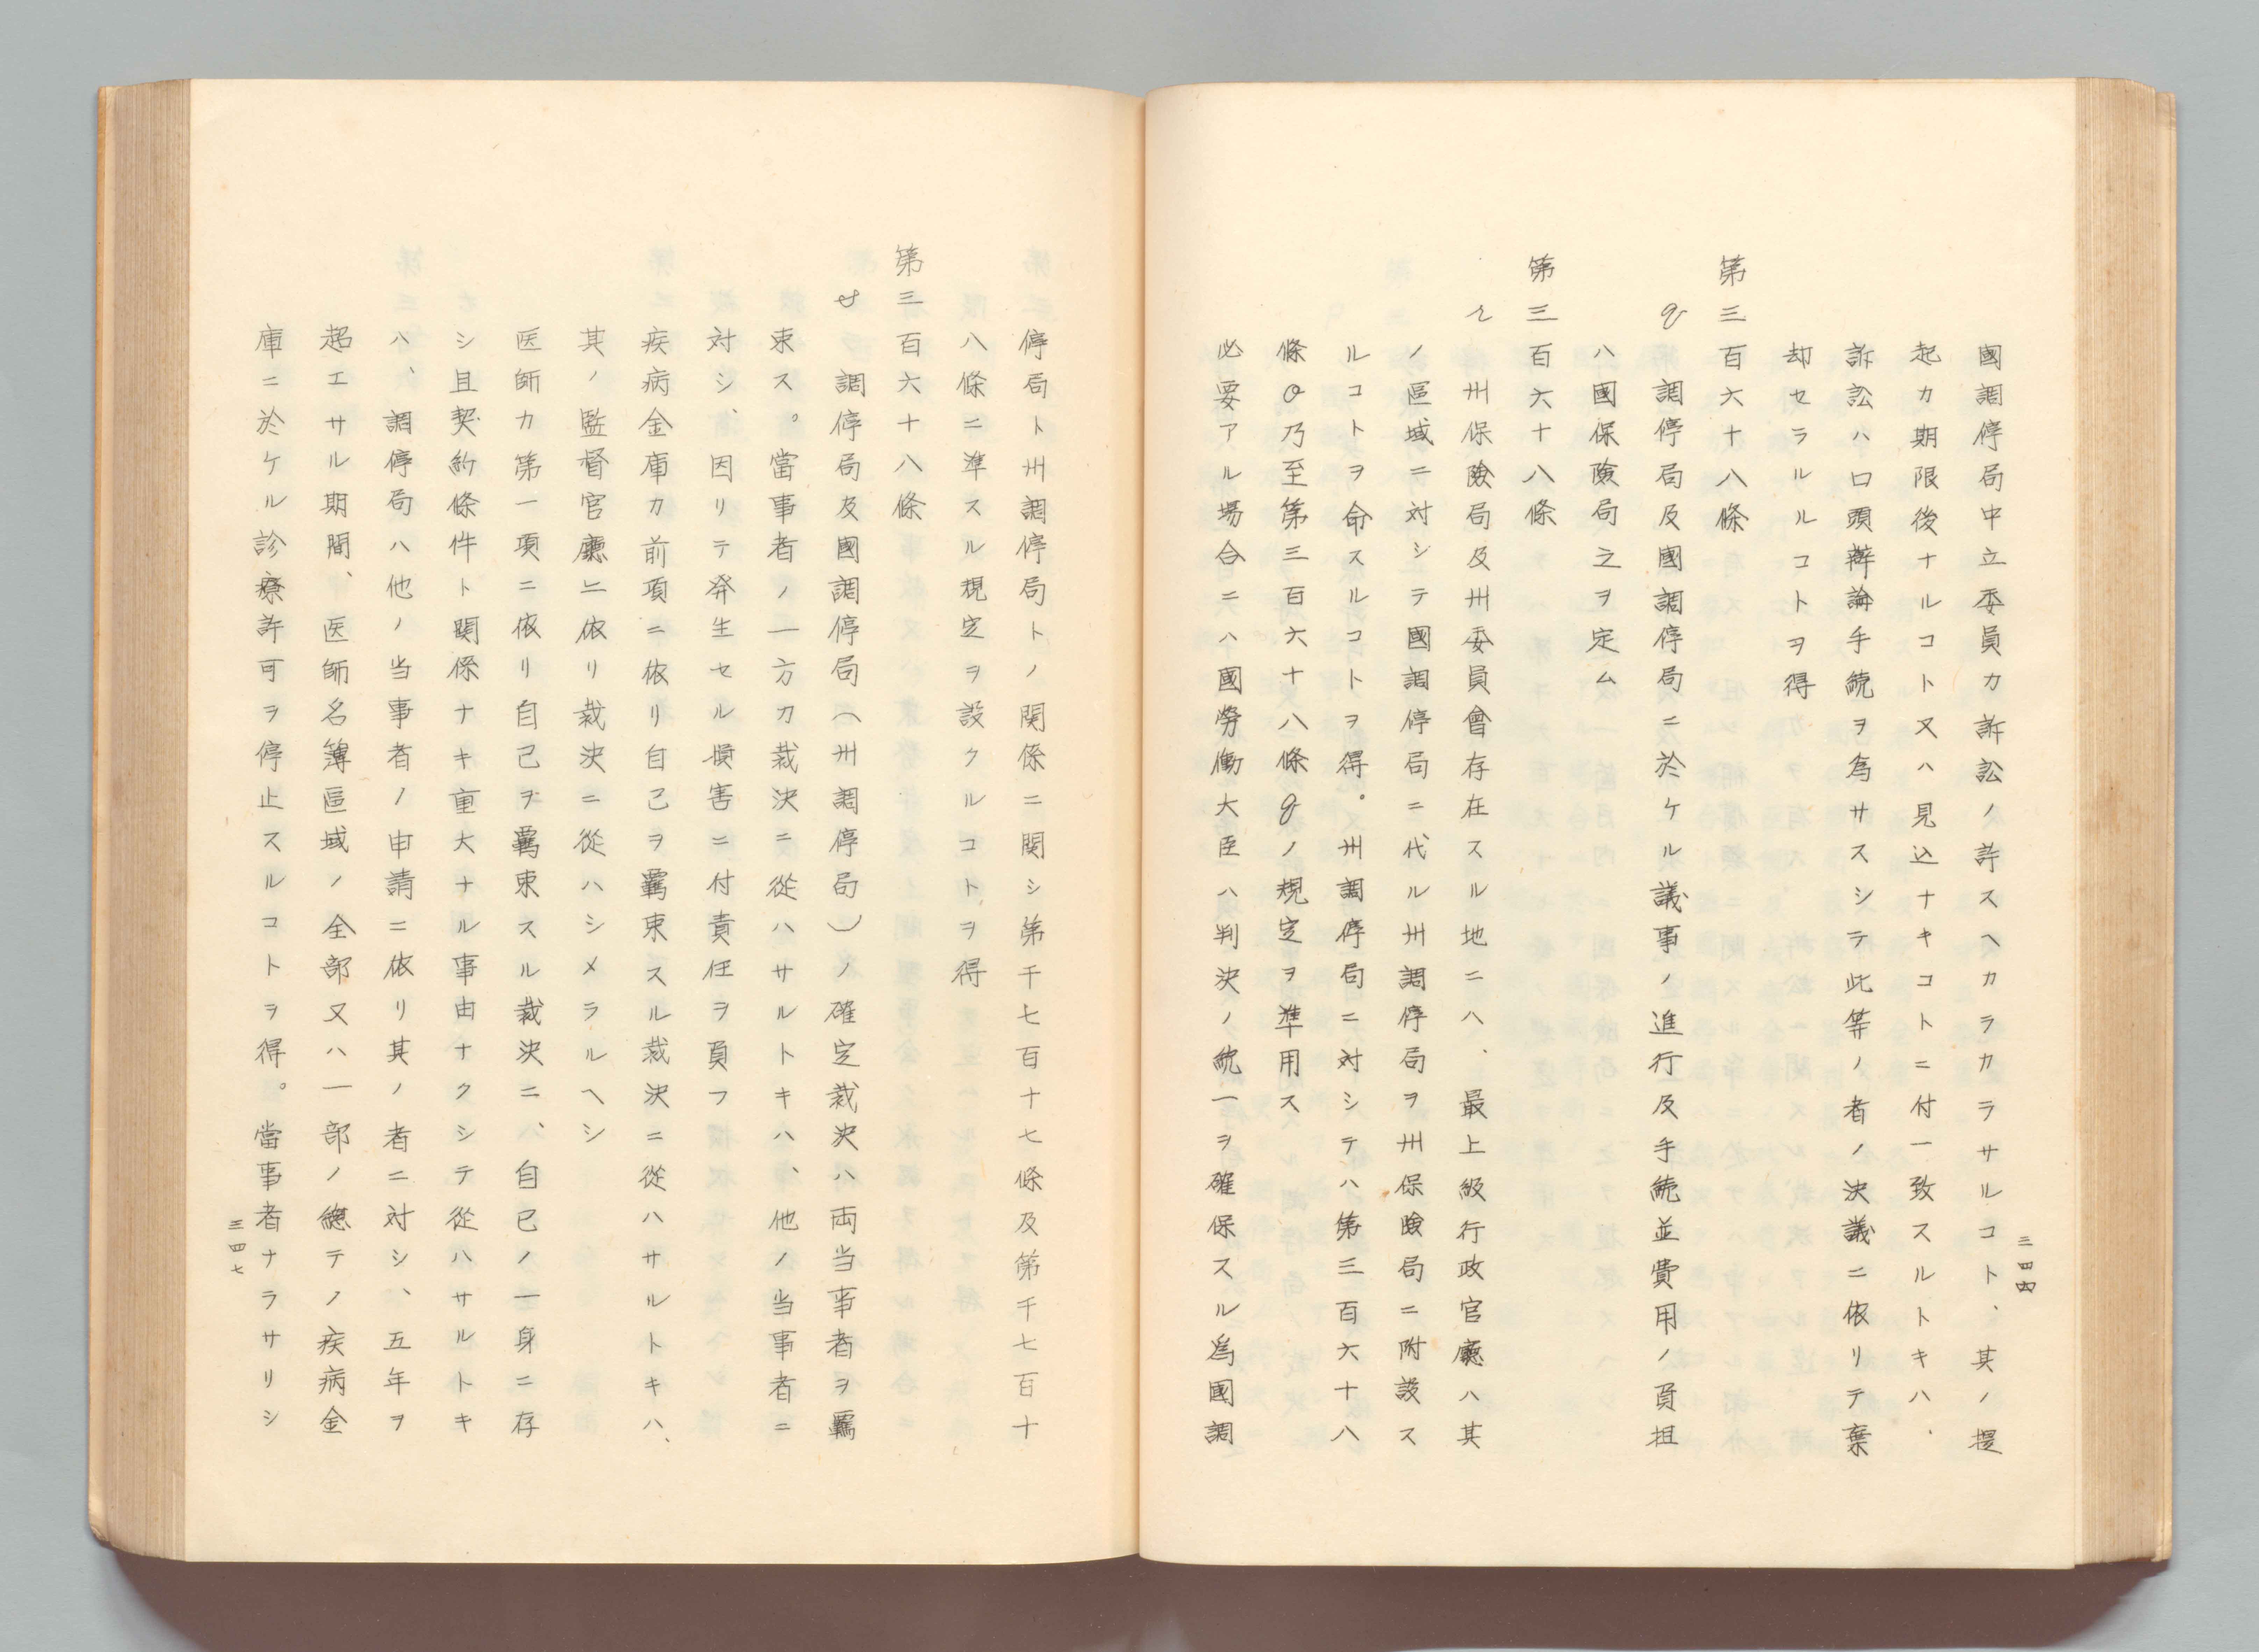 國調停局中立委員カ訴訟ノ許スヘカラカラサルコト、其ノ提
起カ期限後ナルコト又ハ見込ナキコトニ付一致スルトキハ、
訴訟ハ口頭辯論手續ヲ為サスシテ此等ノ者ノ決議ニ依リテ棄
却セラルルコトヲ得
第三百六十八條
q 調停局及國調停局ニ於ケル議事ノ進行及手続並費用ノ負担
ハ國保險局之ヲ定ム
第三百六十八條
r 州保險局及州委員會存在スル地ニハ、最上級行政官廳ハ其
ノ區域ニ対シテ國調停局ニ代ル州調停局ヲ州保險局ニ附設ス
ルコトヲ命スルコトヲ得。州調停局ニ対シテハ第三百六十八
條o乃至第三百六十八條qノ規定ヲ準用ス
必要アル場合ニハ國勞働大臣ハ判決ノ統一ヲ確保スル爲國調
三四六
停局ト州調停局トノ関係ニ関シ第千七百十七條及第千七百十
八條ニ準スル規定ヲ設クルコトヲ得
第三百六十八條
s 調停局及國調停局（州調停局）ノ確定裁決ハ両当事者ヲ羈
束ス。當事者ノ一方カ裁決ニ從ハサルトキハ、他ノ当事者ニ
対シ、因リテ発生セル損害ニ付責任ヲ負フ
疾病金庫カ前項ニ依リ自己ヲ羈束スル裁決ニ從ハサルトキハ、
其ノ監督官廳ニ依リ裁決ニ從ハシメラルヘシ
医師カ第一項ニ依リ自己ヲ羈束スル裁決ニ、自己ノ一身ニ存
シ且契約條件ト関係ナキ重大ナル事由ナクシテ從ハサルトキ
ハ、調停局ハ他ノ当事者ノ申請ニ依リ其ノ者ニ対シ、五年ヲ
超エサル期間、医師名簿區域ノ全部又ハ一部ノ總テノ疾病金
庫ニ於ケル診療許可ヲ停止スルコトヲ得。當事者ナラサリシ
三四七